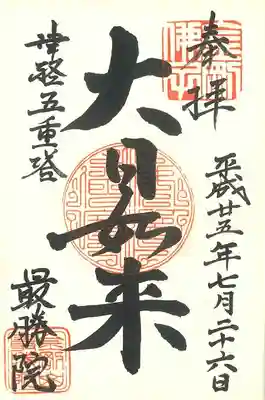 奉拝
平成廿五年七月二十六日
大日如来
五重塔
最勝院